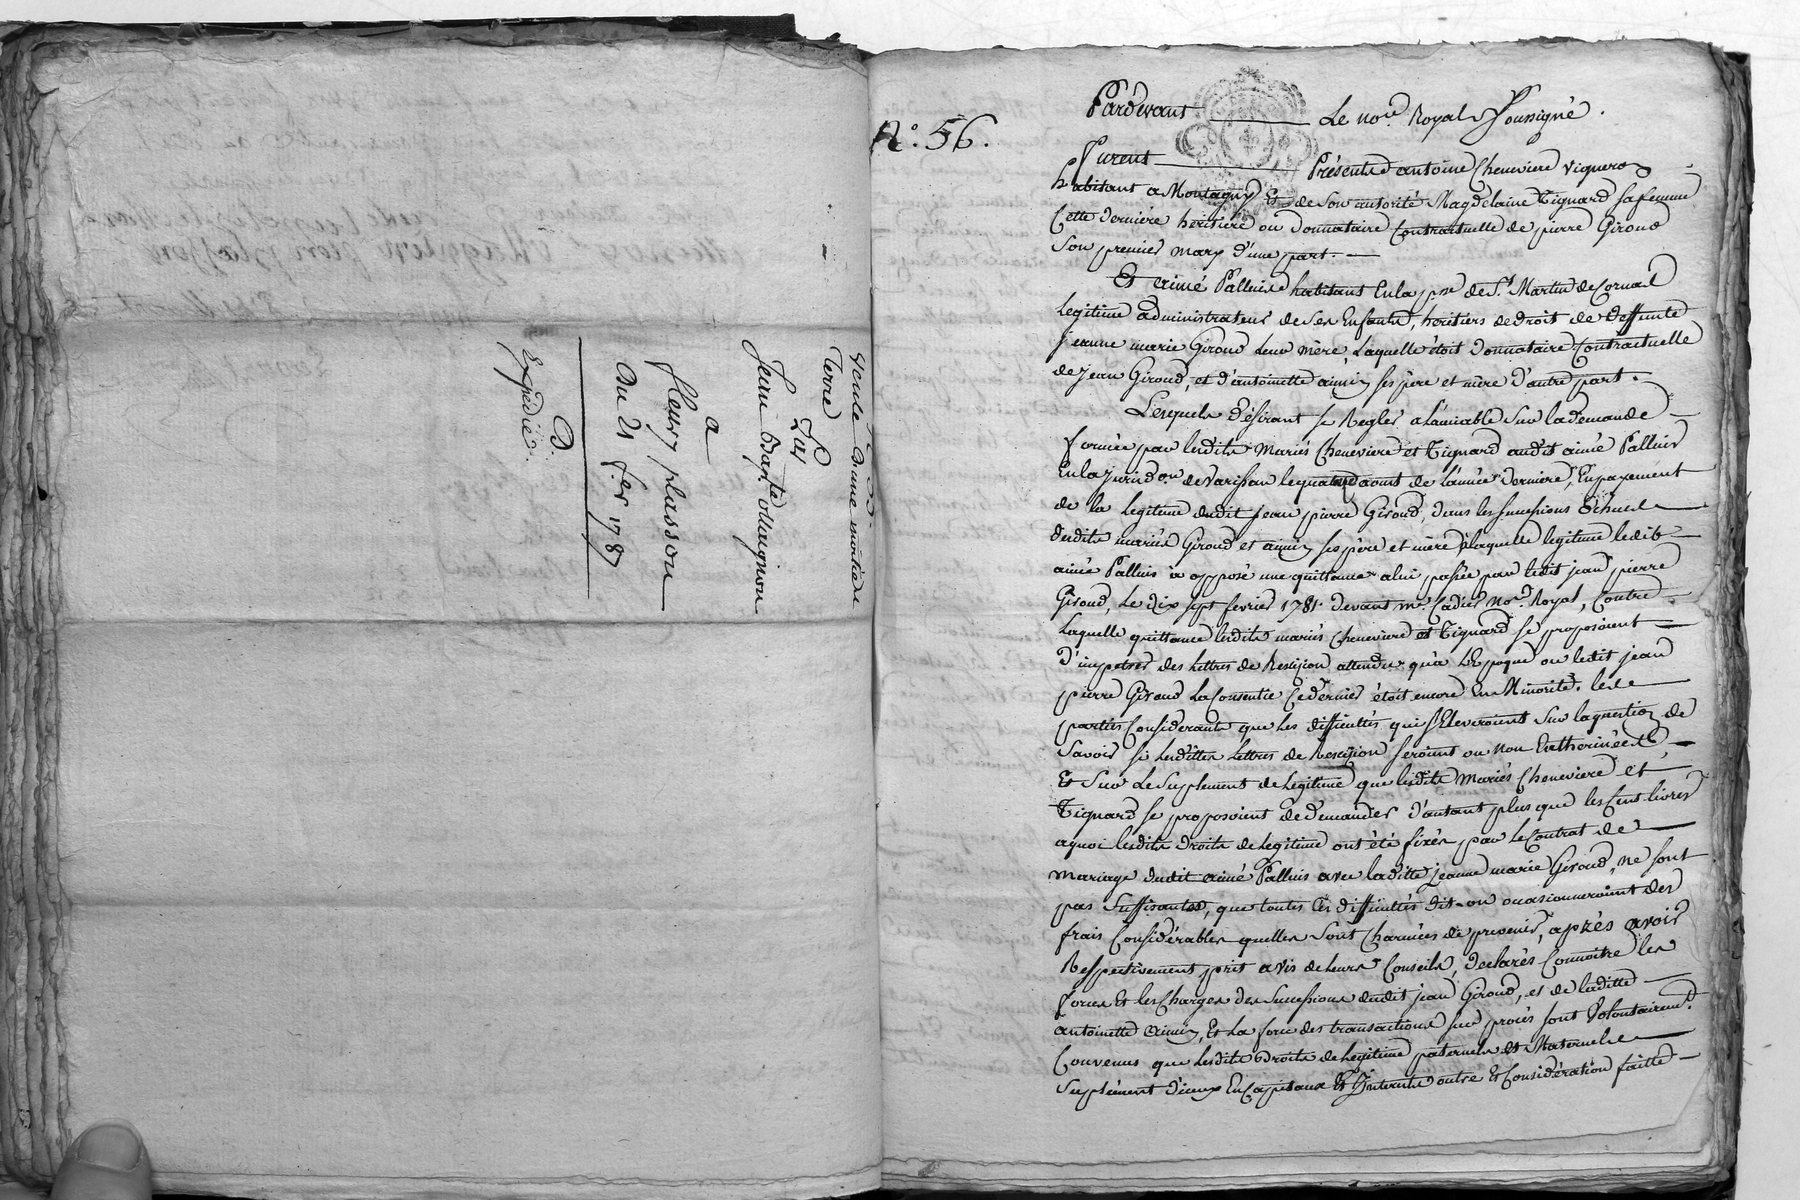 Vente d'une moitié de
Terre
Par
Jean Bapte. Maignon
a
fleury plasson
Du 21 f.er 1787
D.
Expédié.
N.o 56.
Pardevant Le no.re Royal Soussigné.
Furent Présents antoine Cheneviere vigneron
habitant a Montagny Et de Son autorité Magdelaine Tignard sa femme
Cette derniére héritiere ou donnataire Contractuelle de pierre Giroud
Son premier mary d'une part.
Et aimé Palluis habitant En la p.sse de S.t Martin de Cornas
Légitime administrateur de Ses Enfants, héritiers de droit de deffunte
jeanne marie Giroud leur mére, Laquelle étoit donnataire Contractuelle
de jean Giroud, et d'antoinette ses pére et mére d'autre part.
Lesquels désirant se Regler a L'amiable Sur la demande
formée par lesdits Mariés Cheneviere et Tignard audit aimé Palluis
En la jurid.on de le aoust de L'année derniere, En payement
de la Légitime dudit jean pierre Giroud, dans les successions Echues
desdits mariés Giroud et ses pére et mére a laquelle legitime ledit
aimé Palluis a opposé une quittance a lui passée par ledit jean pierre
Giroud, Le dix sept fevrier 1781 devant m.e Cadier No.re Royal, Contre
Laquelle quittance lesdits mariés Cheneviere et Tignard se proposoient
D'impetrer des Lettres de Rescizion attendu qu'a L'Epoque ou ledit jean
pierre Giroud La Consentie Ce dernier étoit encore En Minorité. les
parties Considerants que les difficultés qui s'Eleveroient Sur la question de
Savoir si lesdittes Lettres de Rescizion seroient ou non Entherinées
Et Sur Le Suplement de Legitime que lesdits Mariés Cheneviere et
Tignard se proposoient de demander d'autant plus que les Cent livres
a quoi lesdits droits de Legitime ont été fixés par Le Contrat de
Mariage dudit aimé Palluis avec laditte jeanne marie Giroud, ne sont
pas Suffisantes, que toutes Ces difficultés dit-on occasionneroient des
frais Considérables quelles Sont Charmées de prevenir, après avoir
Respectivement prit avis de leurs Conseils, declarés Connoitre les
forces Et les Charges des Successions dudit jean Giroud, et de laditte
antoinette Et la force des transactions sur procés sont Volontairem.t
Convenus que lesdits Droits de Legitime paternels et Maternels
Suplément d'iceux En Capitaux Et Interets outre Et Considération faitte